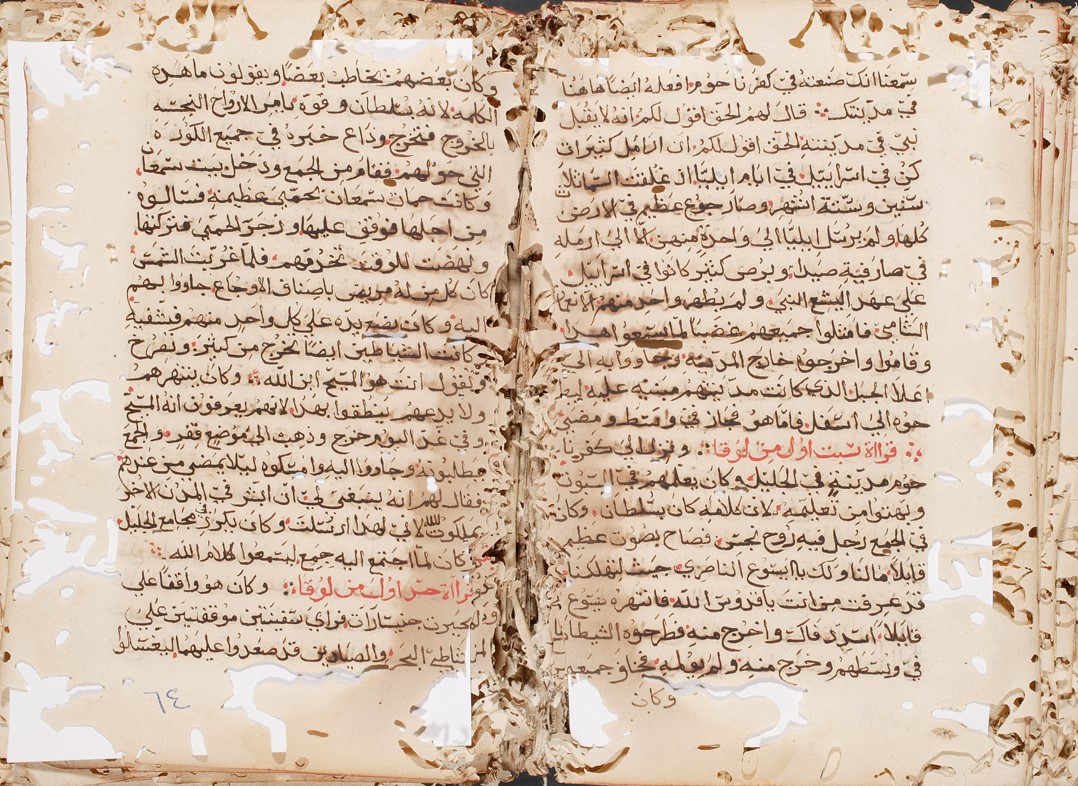 سمعنا انك صنعته في كفرنا حوم افعله ايضا هاهنا
في مدينتك قال لهم الحق اقول لكم انه لا يقبل
نبي في مدينته الحق اقول لكم ان ارامل كثيرات
كن في اسراييل في ايام ايليا اذ غلقت السما ثلاث
سنين وستة اشهر وصار جوع عظيم في الارض
كلها ولم يرسل ايليا الى واحدة منهن الا الى ارمله
في صارفيه صيدا وبرص كثير كانوا في اسراييل
على عهد اليشع النبي ولم يطهر واحد منهم الا نعمان
الشامي فامتلوا جميعهم غضبا لما سمعوا هدا
وقاموا واخرجوه خارج المدينه وجاووا به الى
علا الجبل الدى كانت مدينتهم مبنيه عليه
حوه الى اسفل فاما هو فجاز في وسطهم ومضى
قراة سبت اول من لوقا ونزل الى كفرنا
حوم مدينة في الجليل وكان يعلمهم في السبوت
وبهتوا من تعليمه لان كلامه كان بسلطان وكان
في المجمع رجل فيه روح نجس فصاح بصوت عظيم
قايلا مالنا ولك يا ايسوع الناصري جيت لتهلكنا
قد عرفت من انت يا قدوس الله فانتهره يسوع
قايلا اسدد فاك واخرج منه فطرحوه الشيطان
في وسطهم وخرج منه ولم يولمه فخافو جميعهم
وكان
وكان بعضهم يخاطب بعضا ويقولون ما هده
الكلمه لانه بسلطان وقوه يامر الارواح النجسه
بالخروج فتخرج وداع خبره في جميع الكوره
التي حولهم فقام من الجمع ودخل بيت سمعان
وكانت حماة سمعان بحمى عظيمه فسالوه
من اجلها فوقف عليها وزجر الحمى فتركتها
ونهضت للوقت تخدمهم فلما غربت الشمس
كان كل من له مريض باصناف الاوجاع جاووا بهم
اليه وكان يضع يده على كل واحد منهم فيشفيه
وكانت الشياطين ايضا تخرج من كثير وتصرخ
وتقول انت هو المسيح ابن الله وكان ينتهرهم
ولا يدعهم ينطقوا بهدا لانهم يعرفون انه المسيح
وفي غد اليوم خرج ودهب الى موضع قفر والجمع
يطلبونه وجاووا اليه وامسكوه ليلا يمضي من عندهم
فقال لهم انه ينبغي لي ان ابشر في المدن الاخر
بملكوت الله لاني لهدا ارسلت وكان يكرز في مجامع الجليل
وكان لما اجتمع اليه جمع ليسمعوا كلام الله
قراة حد اول من لوقا وكان هو واقفا على
بحيرة جنيسارات فراى سفينتين موقفتين على
شاطى البحر والصيادين قد صعدوا عليهما ليغسلوا
٦٤